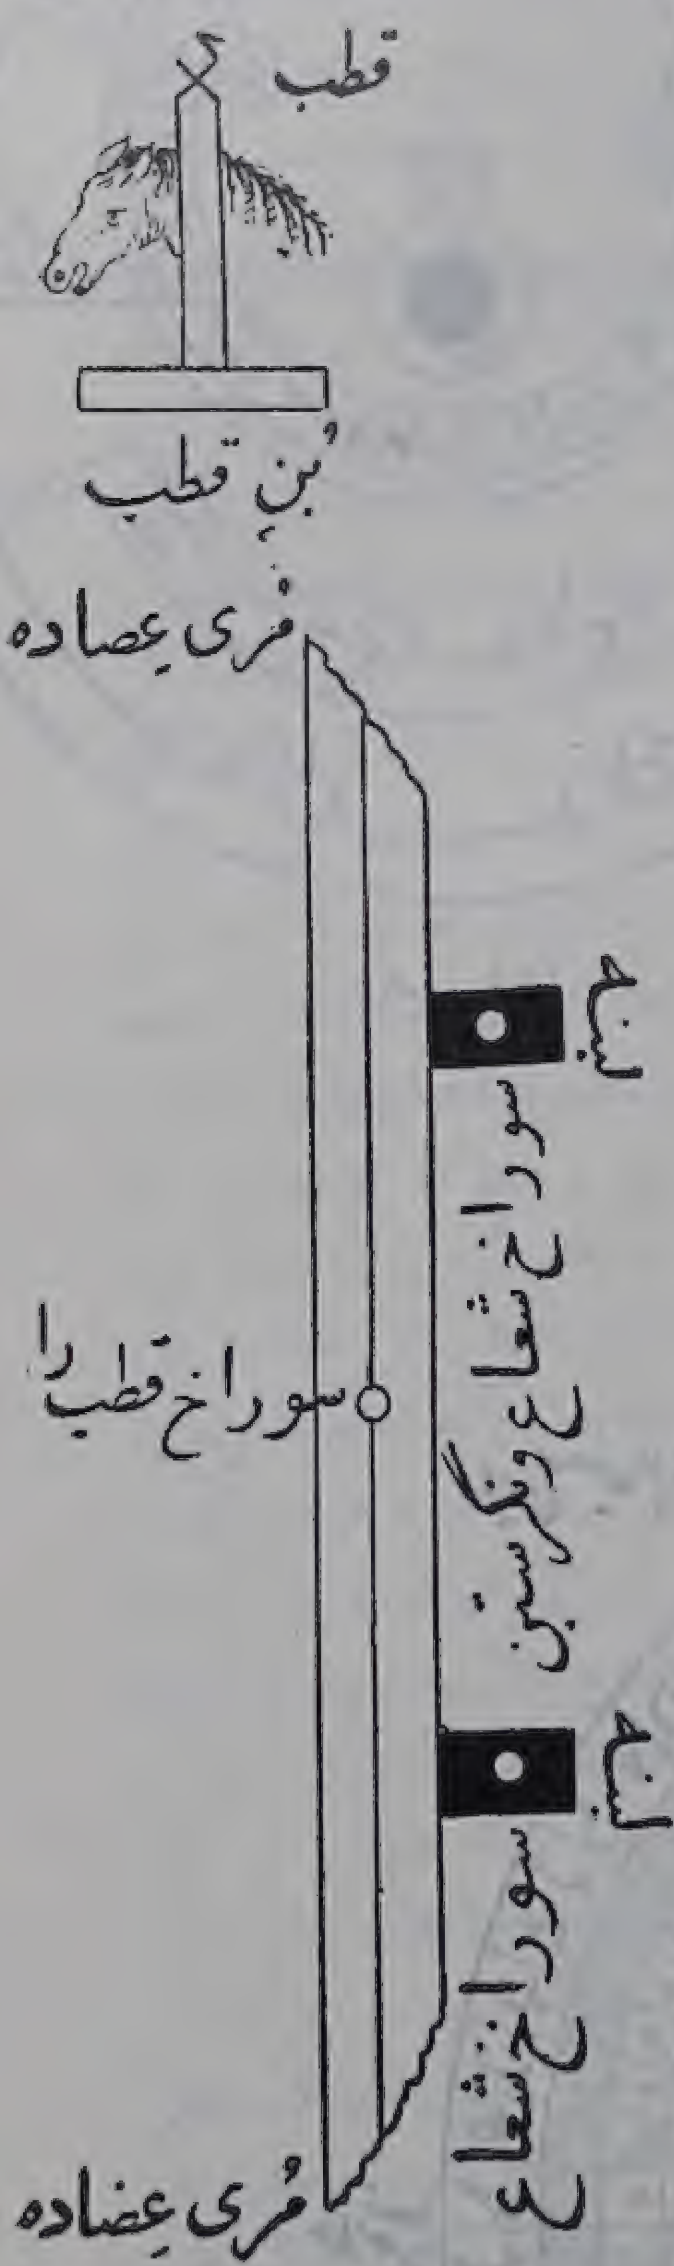 قطب
بُنِ قطب
مُری عِصاده
لبنه
سوراخ شعاع و نگرستن
سوراخ قطب را
لبنه
سوراخ شعاع
مُری عِضاده